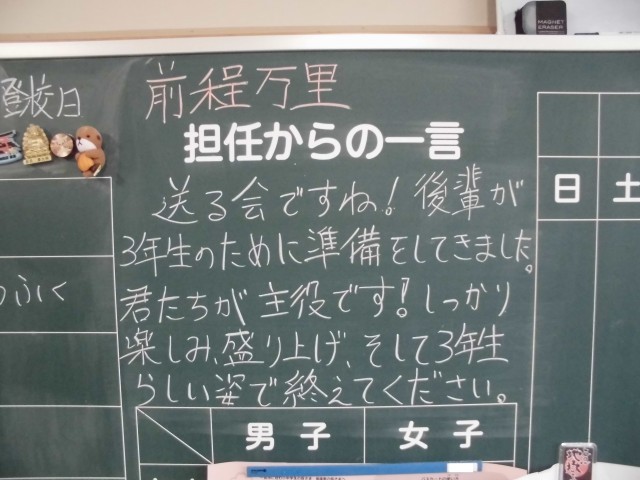 MAGNET
ERASER
登校日
前程万里
担任からの一言
送る会ですね！後輩が
3年生のために準備をしてきました。
君たちが主役です！しっかり
楽しみ、盛り上げ、そして3年生
らしい姿で終えてください。
日 土
ふく
男子 女子